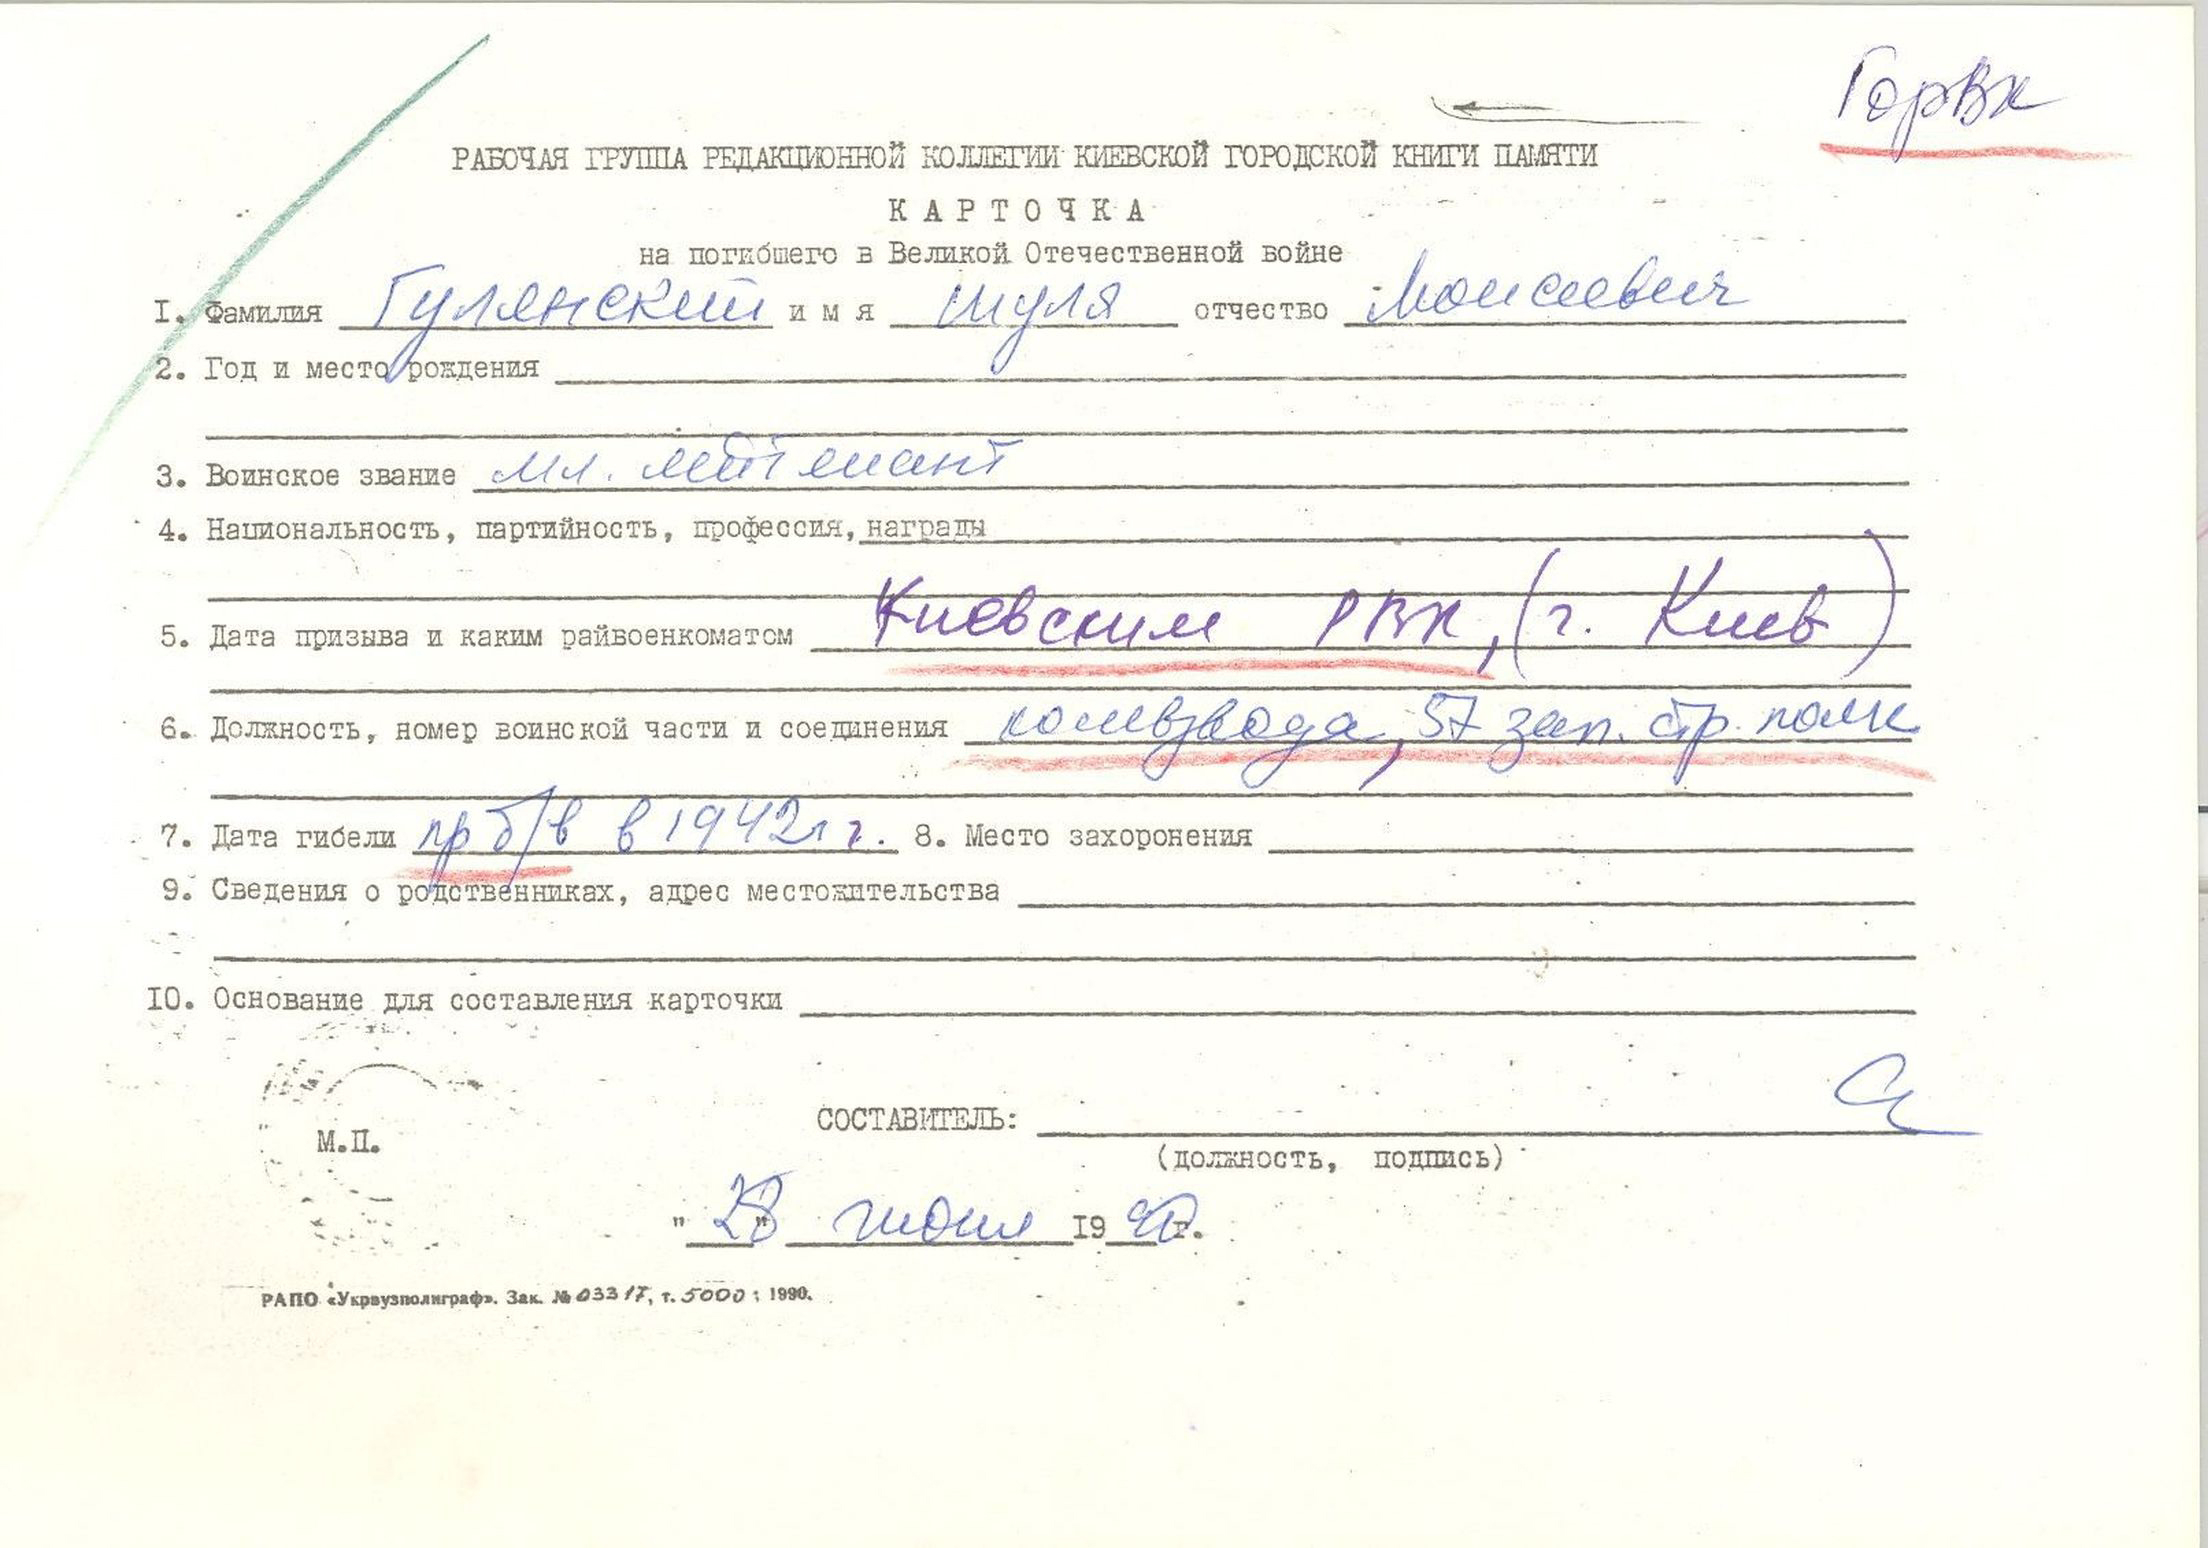 ГорВк
РАБОЧАЯ ГРУППА РЕДАКЦИОННОЙ КОЛЛЕГИИ КИЕВСКОЙ ГОРОДСКОЙ КНИГИ ПАМЯТИ
КАРТОЧКА
на погибшего в Великой Отечественной войне
I. Фамилия Гулянский имя Шуля отчество Моисеевич
2. Год и место рождения
3. Воинское звание мл. лейтенант
4. Национальность, партийность, профессия, награды
5. Дата призыва и каким райвоенкоматом Киевским РВК, (г. Киев)
6. Должность, номер воинской части и соединения комвзвода, 57 зап. стр. полк
7. Дата гибели пр б/в в 1942 г. 8. Место захоронения
9. Сведения о родственниках, адрес местожительства
IO. Основание для составления карточки
СОСТАВИТЕЛЬ:
М.П.
(должность, подпись)
"28" июня 1990 г.
РАПО «Укрвузполиграф». Зак. № 03317, т. 5000 : 1990.